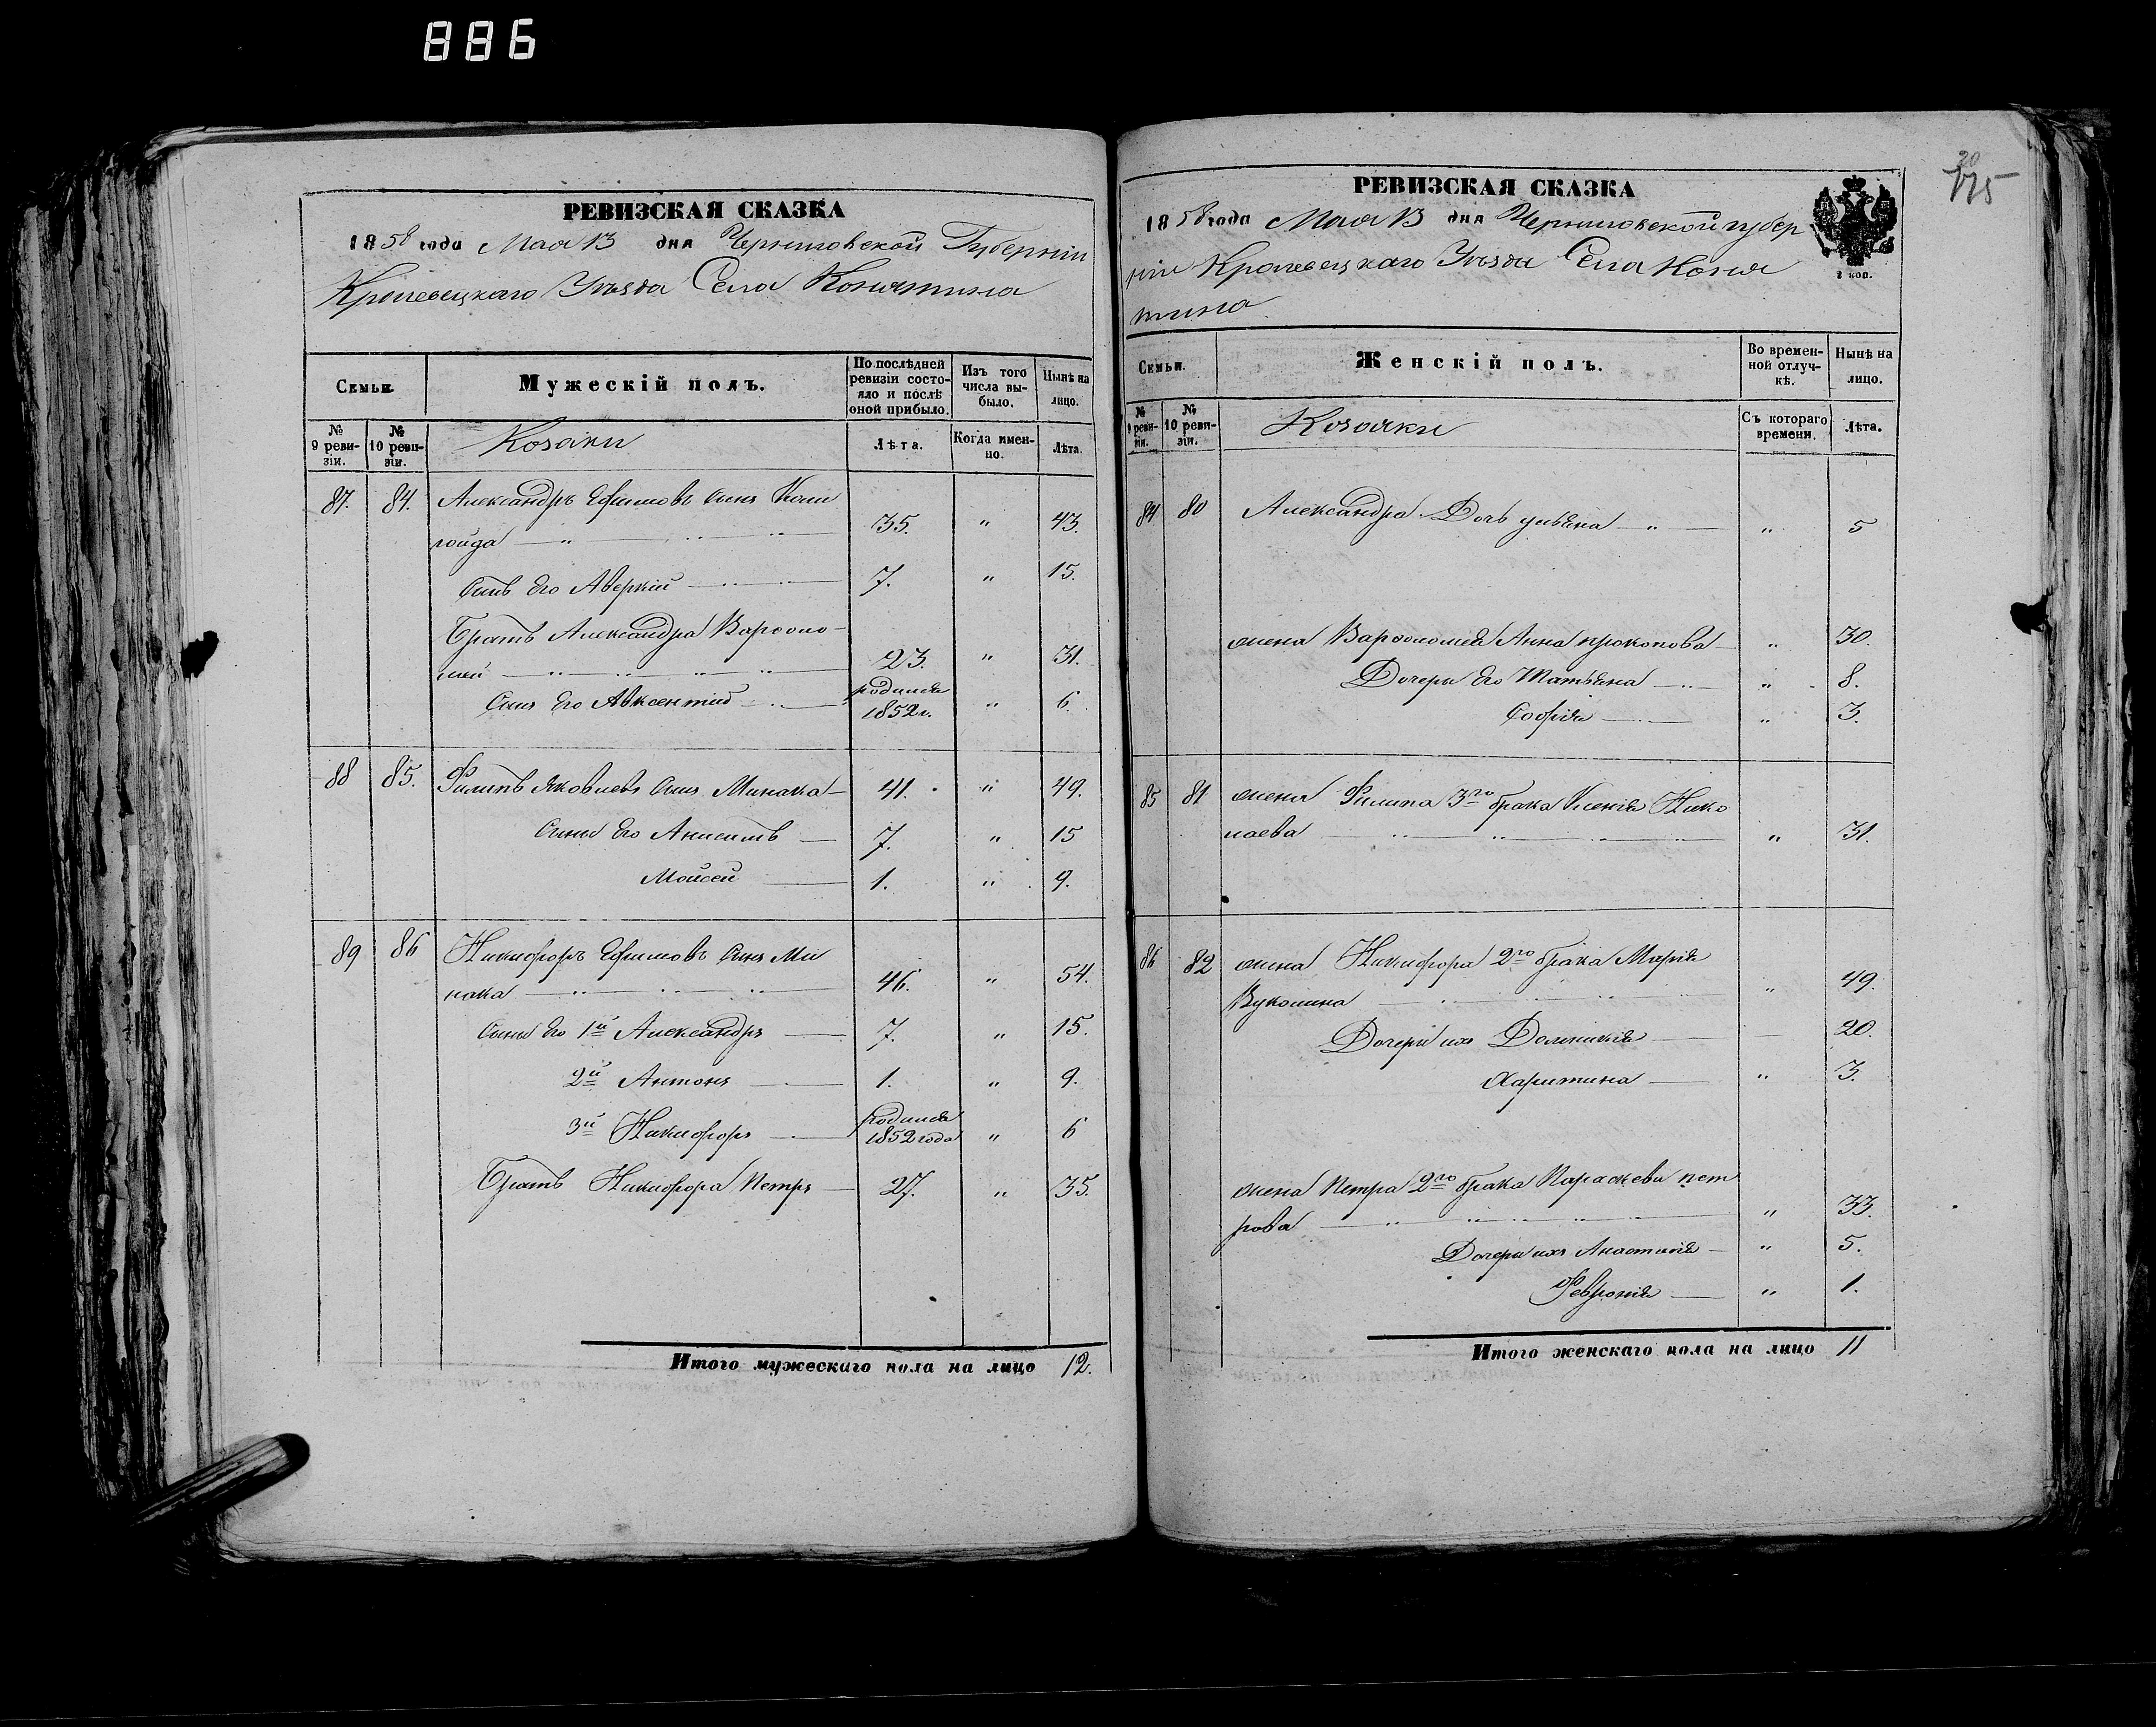 886
РЕВИЗСКАЯ СКАЗКА
1858 года Мая 13 дня Черниговской Губерніи
Кролевецкаго Уѣзда Села Конятина
Семьи. Мужескій полъ. По послѣдней ревизіи состояло и послѣ оной прибыло. Изъ того числа выбыло. Нынѣ на лицо.
№ 9 ревизіи. № 10 ревизіи. Козаки Лѣта. Когда именно. Лѣта.
87. 84. Александръ Ефимовъ сынъ
35. " 43.
Сынъ Его Аверкій 7. " 15.
Братъ Александра Варѳоло-
мей 23. " 31.
Сынъ Его Авксентій родился 1852 г. " 6.
88 85. Филипъ Яковлевъ Сынъ Минака 41. " 49.
Сыны Его Анисимъ 7. " 15
Мойсей 1. " 9.
89 86 Никифоръ Ефимовъ Сынъ Ми
нака 46. " 54.
Сыны Его 1й Александръ 7. " 15.
2й Антонъ 1. " 9.
3й Никифоръ родился 1852 года " 6
Братъ Никифора Петръ 27. " 35.
Итого мужескаго пола на лицо 12.
175
РЕВИЗСКАЯ СКАЗКА
1858 года Мая 13 дня Черниговской губер
ніи Кролевецкаго Уѣзда Села Коня
тина
2 коп.
Семьи. Женскій полъ. Во временной отлучкѣ. Нынѣ на лицо.
№ 9 ревизіи. № 10 ревизіи. Козачки Съ котораго времени. Лѣта.
84 80 Александра Дочь " " 5
жена Варѳоломея Анна Прокопова " 30.
Дочери Его Татьяна " 8.
Софія " 3.
85 81 жена Филипа 3го брака Ксенія Нико
лаева " 31.
86 82 жена Никифора 2го брака Марія
Вуколина " 49.
Дочери ихъ Домникія 20.
Харитина " 3.
жена Петра 2го брака Параскева Пет
рова " 33.
Дочери ихъ Анастасія " 5.
Февронія " 1.
Итого женскаго пола на лицо 11